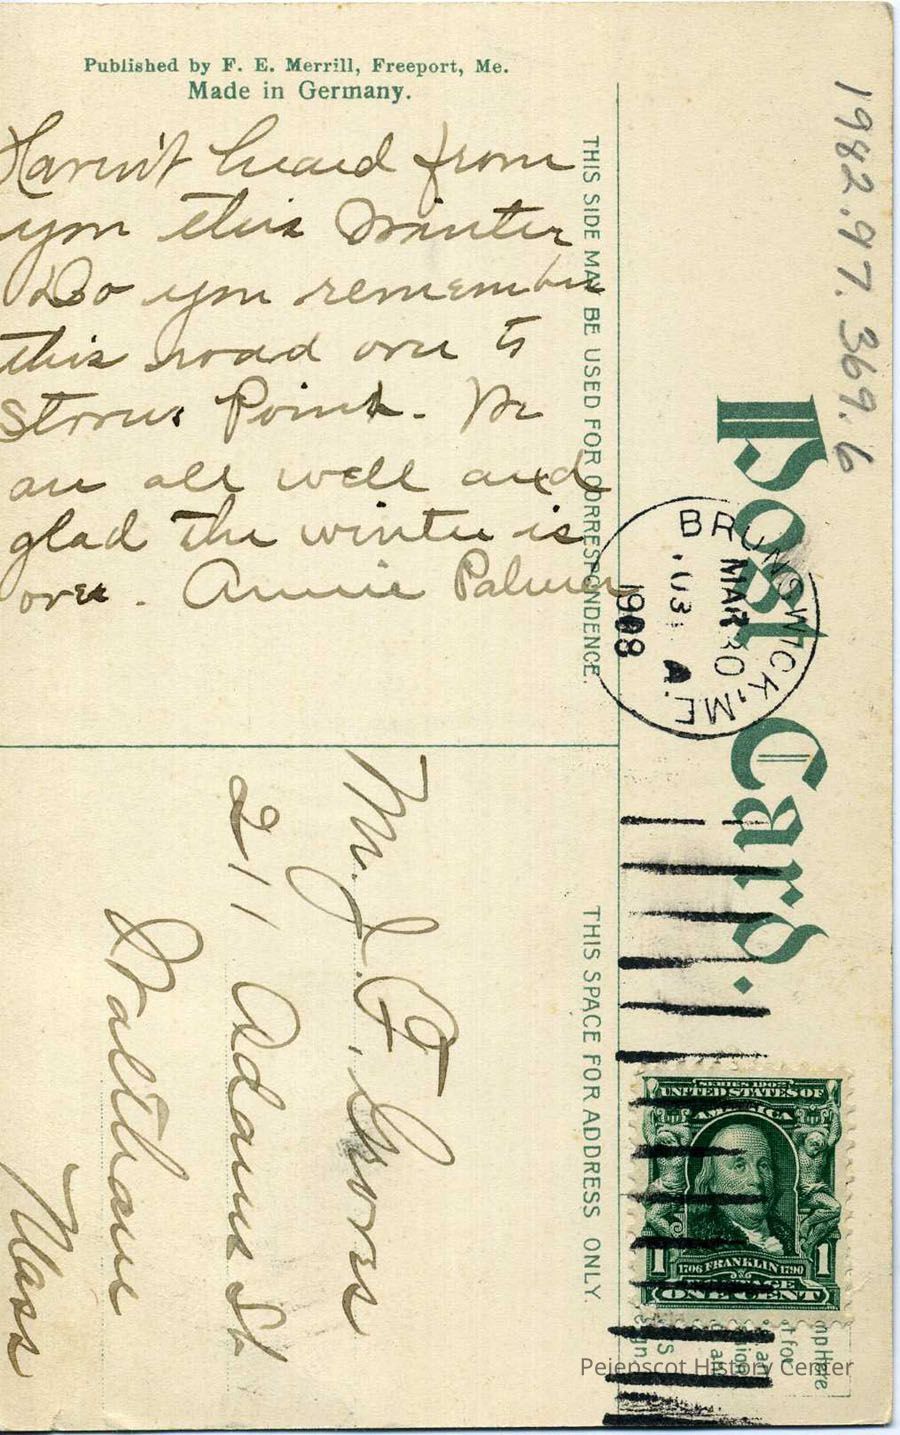 Published by F. E. Merrill, Freeport, Me.
Made in Germany.
Haven't heard from
you this winter
Do you remember
this road over to
Storers Point. We
are all well and
glad the winter is
over. Annie Palmer
THIS SIDE MAY BE USED FOR CORRESPONDENCE.
1982.97.369.6
Post Card.
BRUNSWICK, ME.
MAR 30
A
1908
THIS SPACE FOR ADDRESS ONLY.
Mr. J. F.
211 Adams St.
Waltham
Mass
SERIES 1902
UNITED STATES OF
AMERICA
1706 FRANKLIN 1790
1 1
ONE CENT
Pejepscot History Center